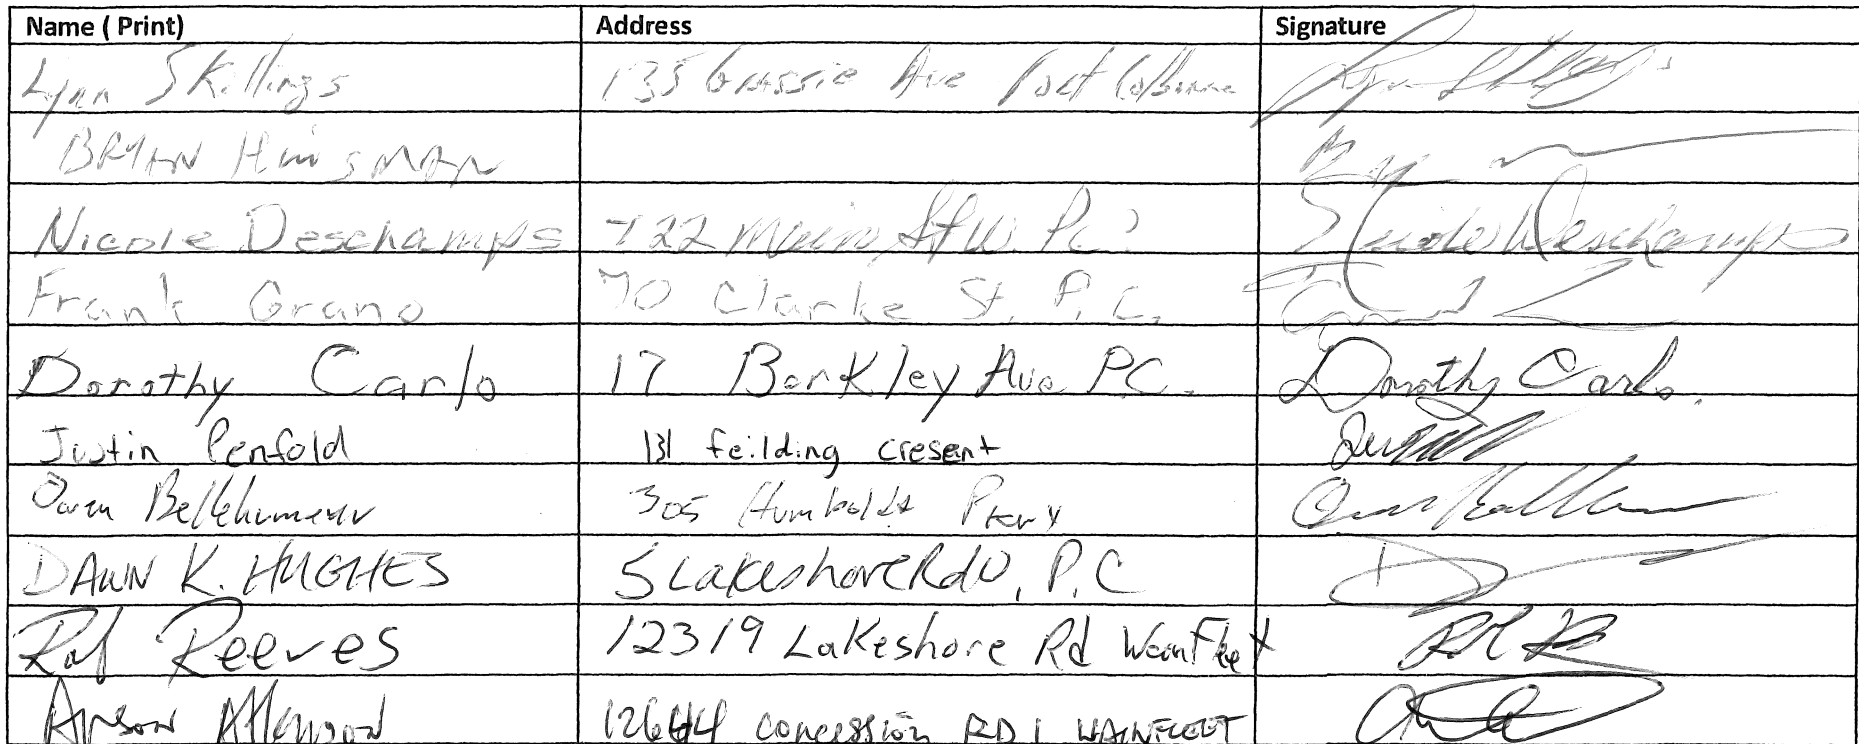 Name ( Print) Address Signature
Lynn Skillings 135 Grassie Ave Port Colborne Lynn Skillings
BRYAN HuisMAN
Nicole Deschamps 722 Main St W. P.C. Nicole Deschamps
Frank Grano 70 Clarke St. P.C.
Dorothy Carlo 17 Barkley Ave P.C. Dorothy Carlo
Justin Penfold 131 feilding cresent
Owen Bellehumeur 305 Humboldt Pkwy
DAWN K. HUGHES 5 Lakeshore Rd W, P.C
Reeves 12319 Lakeshore Rd Wainfleet
12644 concession RD 1 WAINFLEET